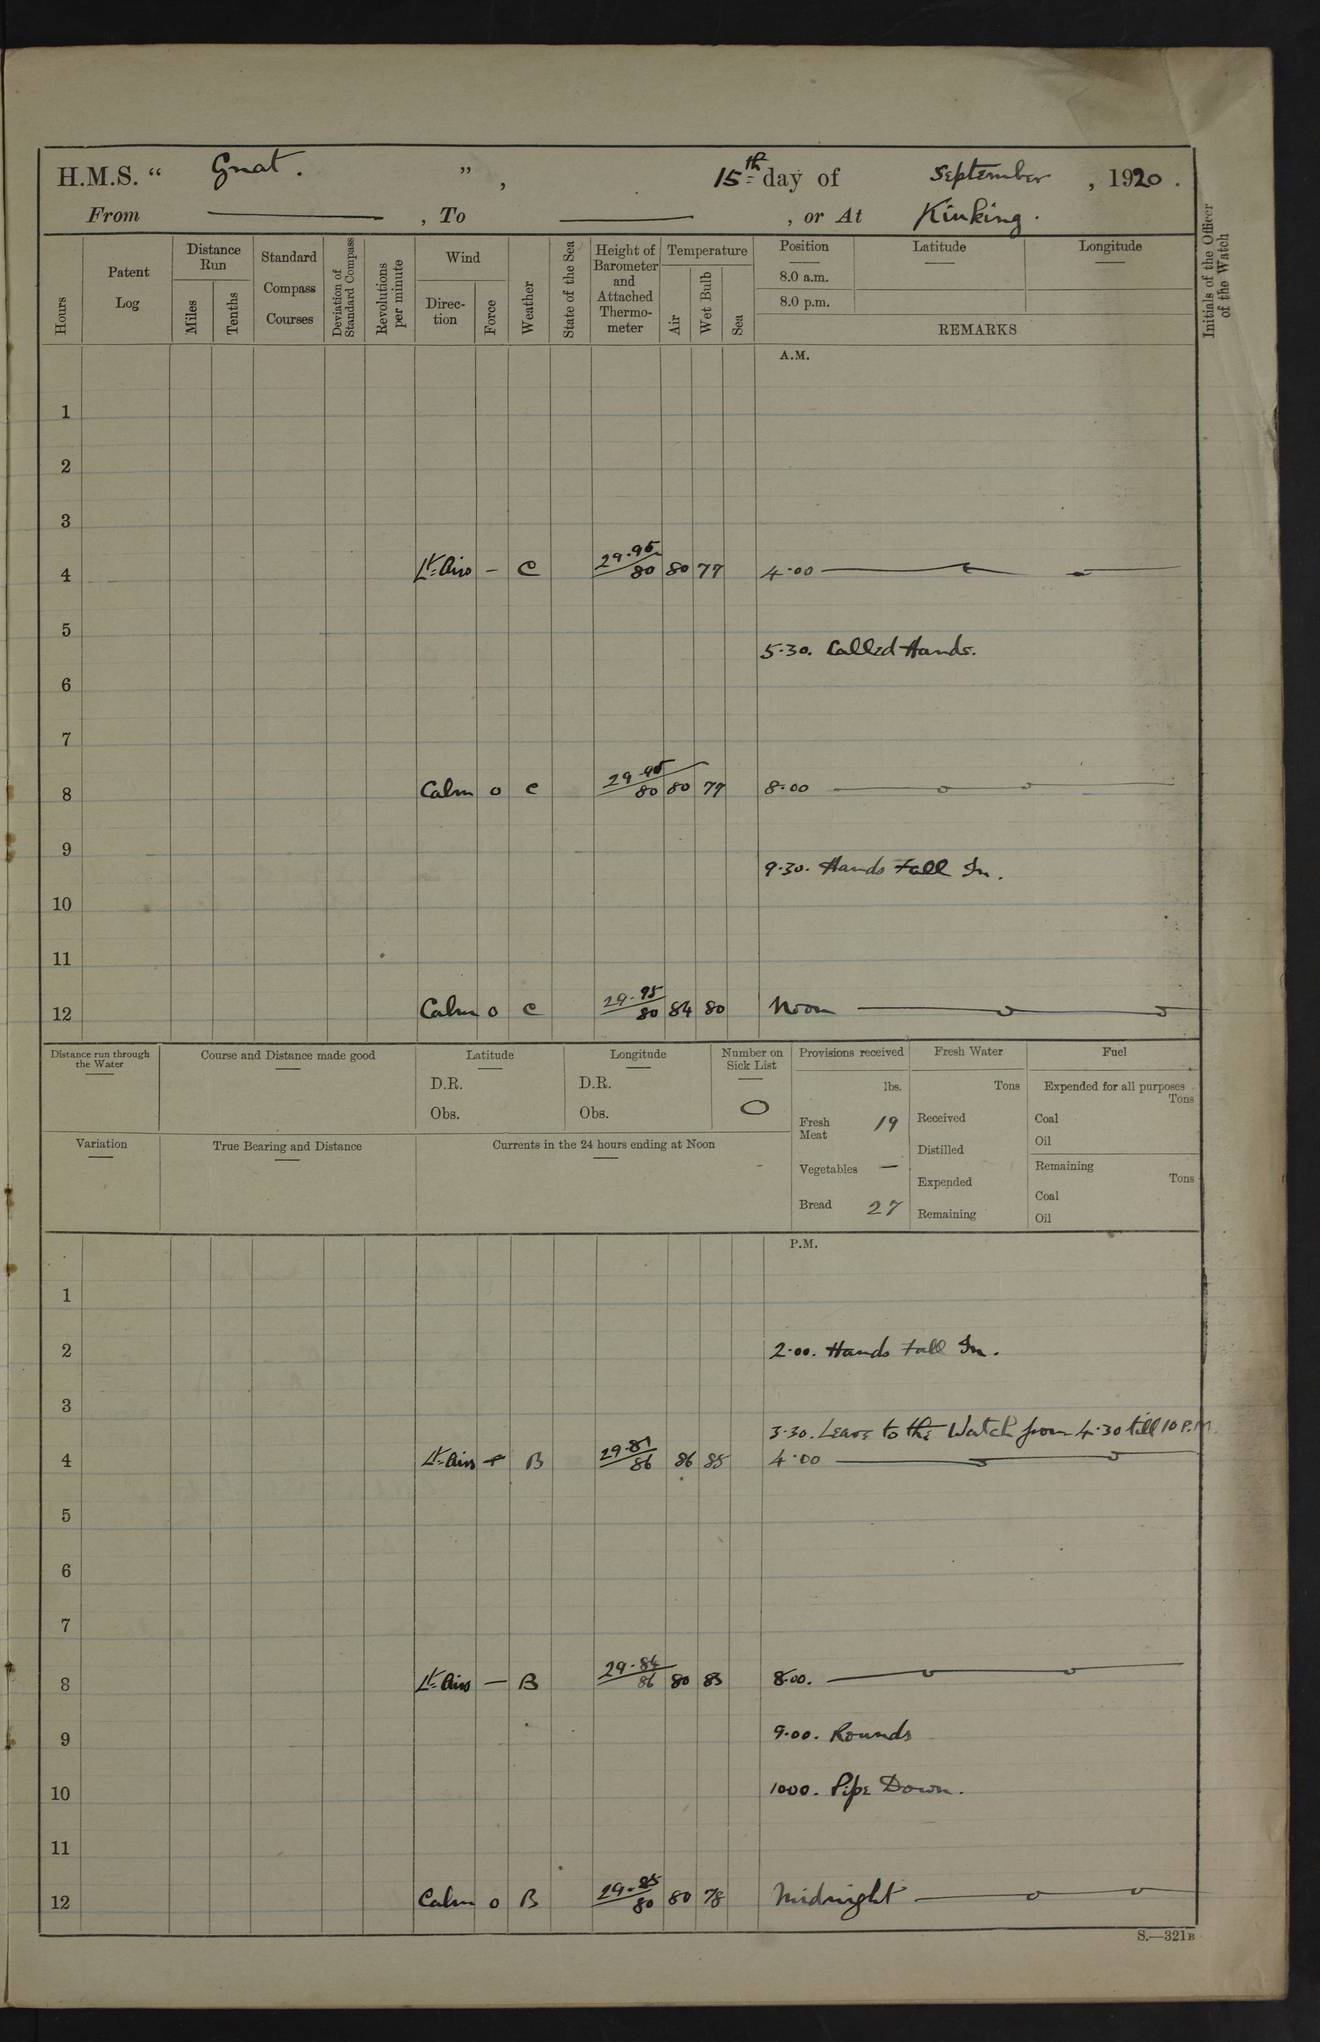 H.M.S. “ Gnat. ”, 15th day of September, 1920.
From , To , or At Kinking.
Hours
Patent Log
Distance Run
Miles
Tenths
Standard Compass Courses
Deviation of Standard Compass
Revolutions per minute
Wind
Direction
Force
Weather
State of the Sea
Height of Barometer and Attached Thermometer
Temperature
Air
Wet Bulb
Sea
Position
8.0 a.m.
8.0 p.m.
Latitude
Longitude
REMARKS
Initials of the Officer of the Watch
A.M.
1
2
3
4 Lt Airs — C 29.95 80 80 77 4.00
5
5.30. Called Hands.
6
7
8 Calm 0 C 29.95 80 80 77 8.00
9
9.30. Hands Fall In.
10
11
12 Calm 0 C 29.95 80 84 80 Noon
Distance run through the Water
Course and Distance made good
Latitude
D.R.
Obs.
Longitude
D.R.
Obs.
Number on Sick List
0
Provisions received
lbs.
Fresh Meat 19
Vegetables —
Bread 27
Fresh Water
Tons
Received
Distilled
Expended
Remaining
Fuel
Expended for all purposes
Tons
Coal
Oil
Remaining
Tons
Coal
Oil
Variation
True Bearing and Distance
Currents in the 24 hours ending at Noon
P.M.
1
2 2.00. Hands Fall In.
3
3.30. Leave to the Watch from 4.30 till 10 P.M.
4 Lt Airs B 29.81 86 86 85 4.00
5
6
7
8 Lt Airs — B 29.84 86 80 83 8.00.
9 9.00. Rounds
10 1000. Pipe Down.
11
12 Calm 0 B 29.85 80 80 78 Midnight
S.—321B